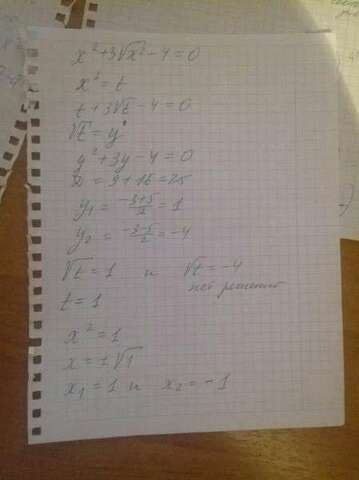 x² + 3√x² - 4 = 0
x² = t
t + 3√t - 4 = 0
√t = y
y² + 3y - 4 = 0
D = 9 + 16 = 25
y₁ = (-3+5)/2 = 1
y₂ = (-3-5)/2 = -4
√t = 1 и √t = -4
нет решений
t = 1
x² = 1
x = ±√1
x₁ = 1 и x₂ = -1